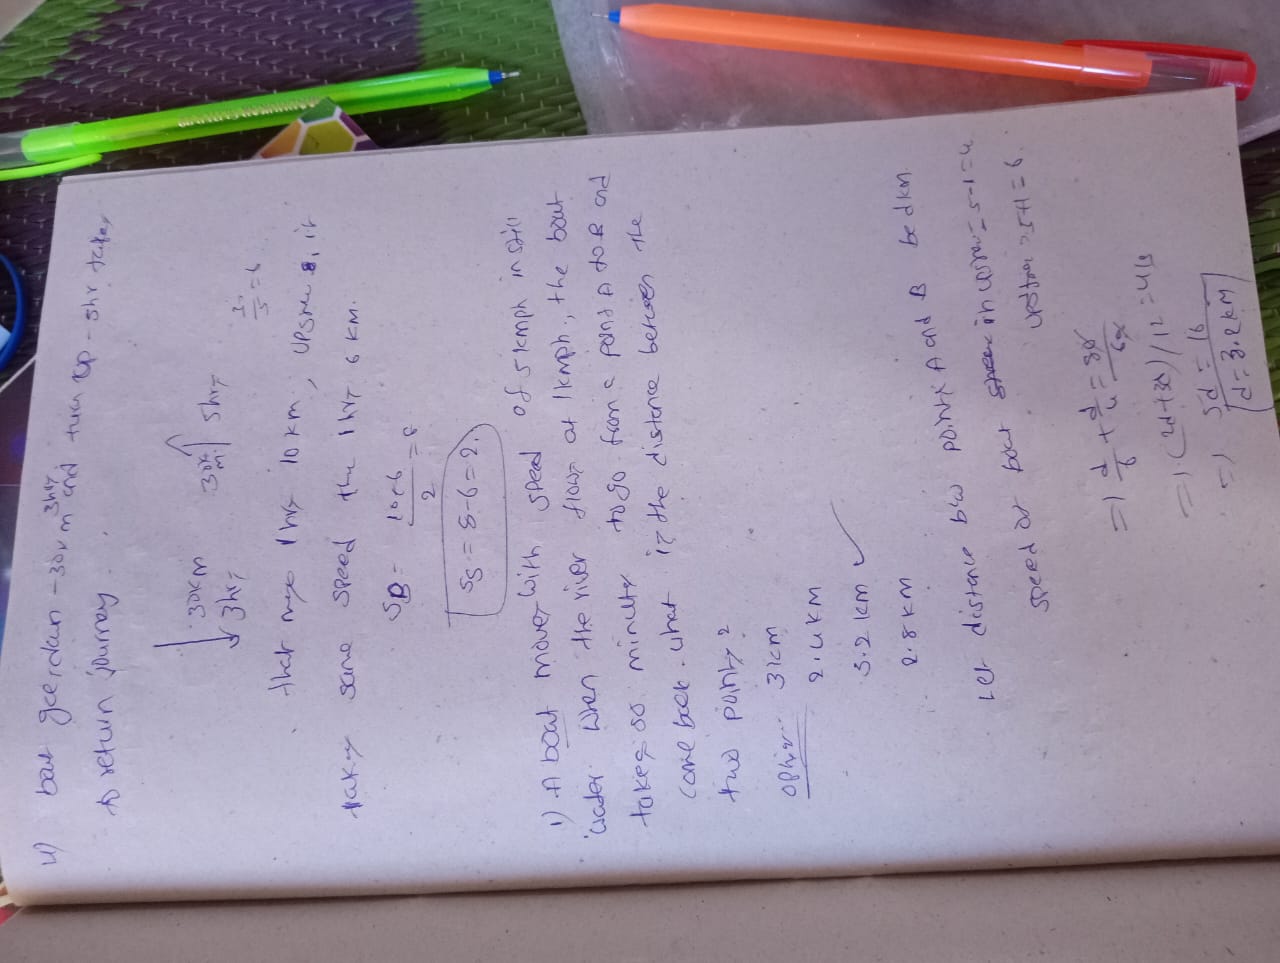 4) boat goes down - 30km 3hrs and turn up - 5hr takes
to return journey.
30km
3hrs
30km 5hrs
30/5 = 6
that mens 1hrs 10km, upsme, it
takes same speed the 1hrs 6 km.
SB = 10+6/2 = 8
SS = 8-6 = 2.
1) A boat moves with speed of 5kmph in still
water. When the river flows at 1kmph, the boat
takes 80 minutes to go from a point A to B and
come back. what is the distance between the
two points?
option 3km
2.4km
3.2km ✓
2.8km
Let distance b/w points A and B be dkm.
speed of boat = 5-1=4
= 5+1=6
=) d/6 + d/4 = 80/60
=) (2d+3d)/12 = 4/3
=) 5d = 16
d=3.2km